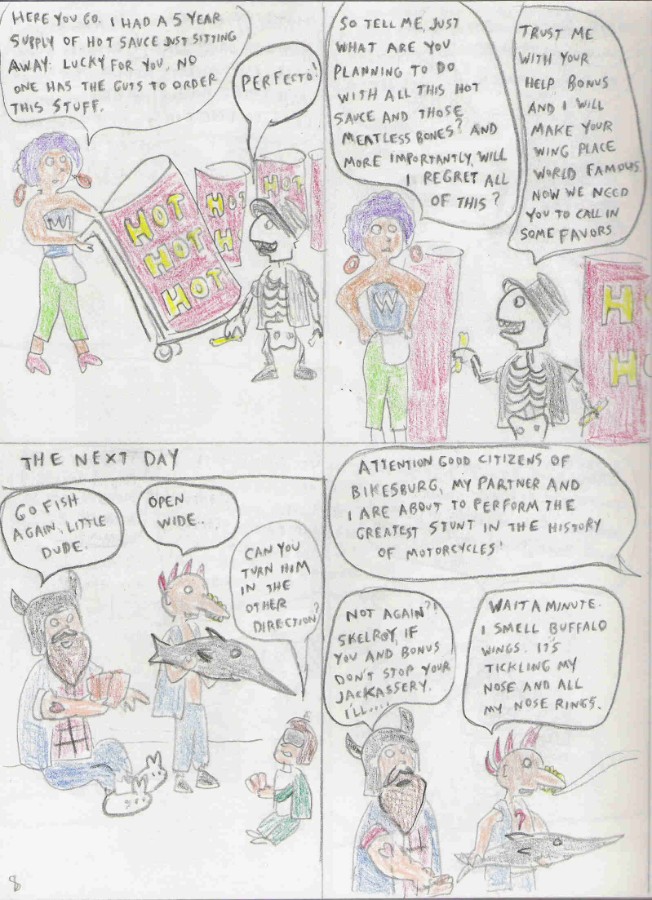 HERE YOU GO. I HAD A 5 YEAR
SUPPLY OF HOT SAUCE JUST SITTING
AWAY. LUCKY FOR YOU, NO
ONE HAS THE GUTS TO ORDER
THIS STUFF.
PERFECTO!
W
HOT
HOT
HOT
HOT
H
HOT
SO TELL ME, JUST
WHAT ARE YOU
PLANNING TO DO
WITH ALL THIS HOT
SAUCE AND THOSE
MEATLESS BONES? AND
MORE IMPORTANTLY, WILL
I REGRET ALL
OF THIS?
TRUST ME
WITH YOUR
HELP BONUS
AND I WILL
MAKE YOUR
WING PLACE
WORLD FAMOUS
NOW WE NEED
YOU TO CALL IN
SOME FAVORS
W
H
H
THE NEXT DAY
GO FISH
AGAIN, LITTLE
DUDE.
OPEN
WIDE..
CAN YOU
TURN HIM
IN THE
OTHER
DIRECTION?
ATTENTION GOOD CITIZENS OF
BIKESBURG, MY PARTNER AND
I ARE ABOUT TO PERFORM THE
GREATEST STUNT IN THE HISTORY
OF MOTORCYCLES!
NOT AGAIN?!
SKELROY, IF
YOU AND BONUS
DON'T STOP YOUR
JACKASSERY,
I'LL....
WAIT A MINUTE.
I SMELL BUFFALO
WINGS. IT'S
TICKLING MY
NOSE AND ALL
MY NOSE RINGS.
?
8